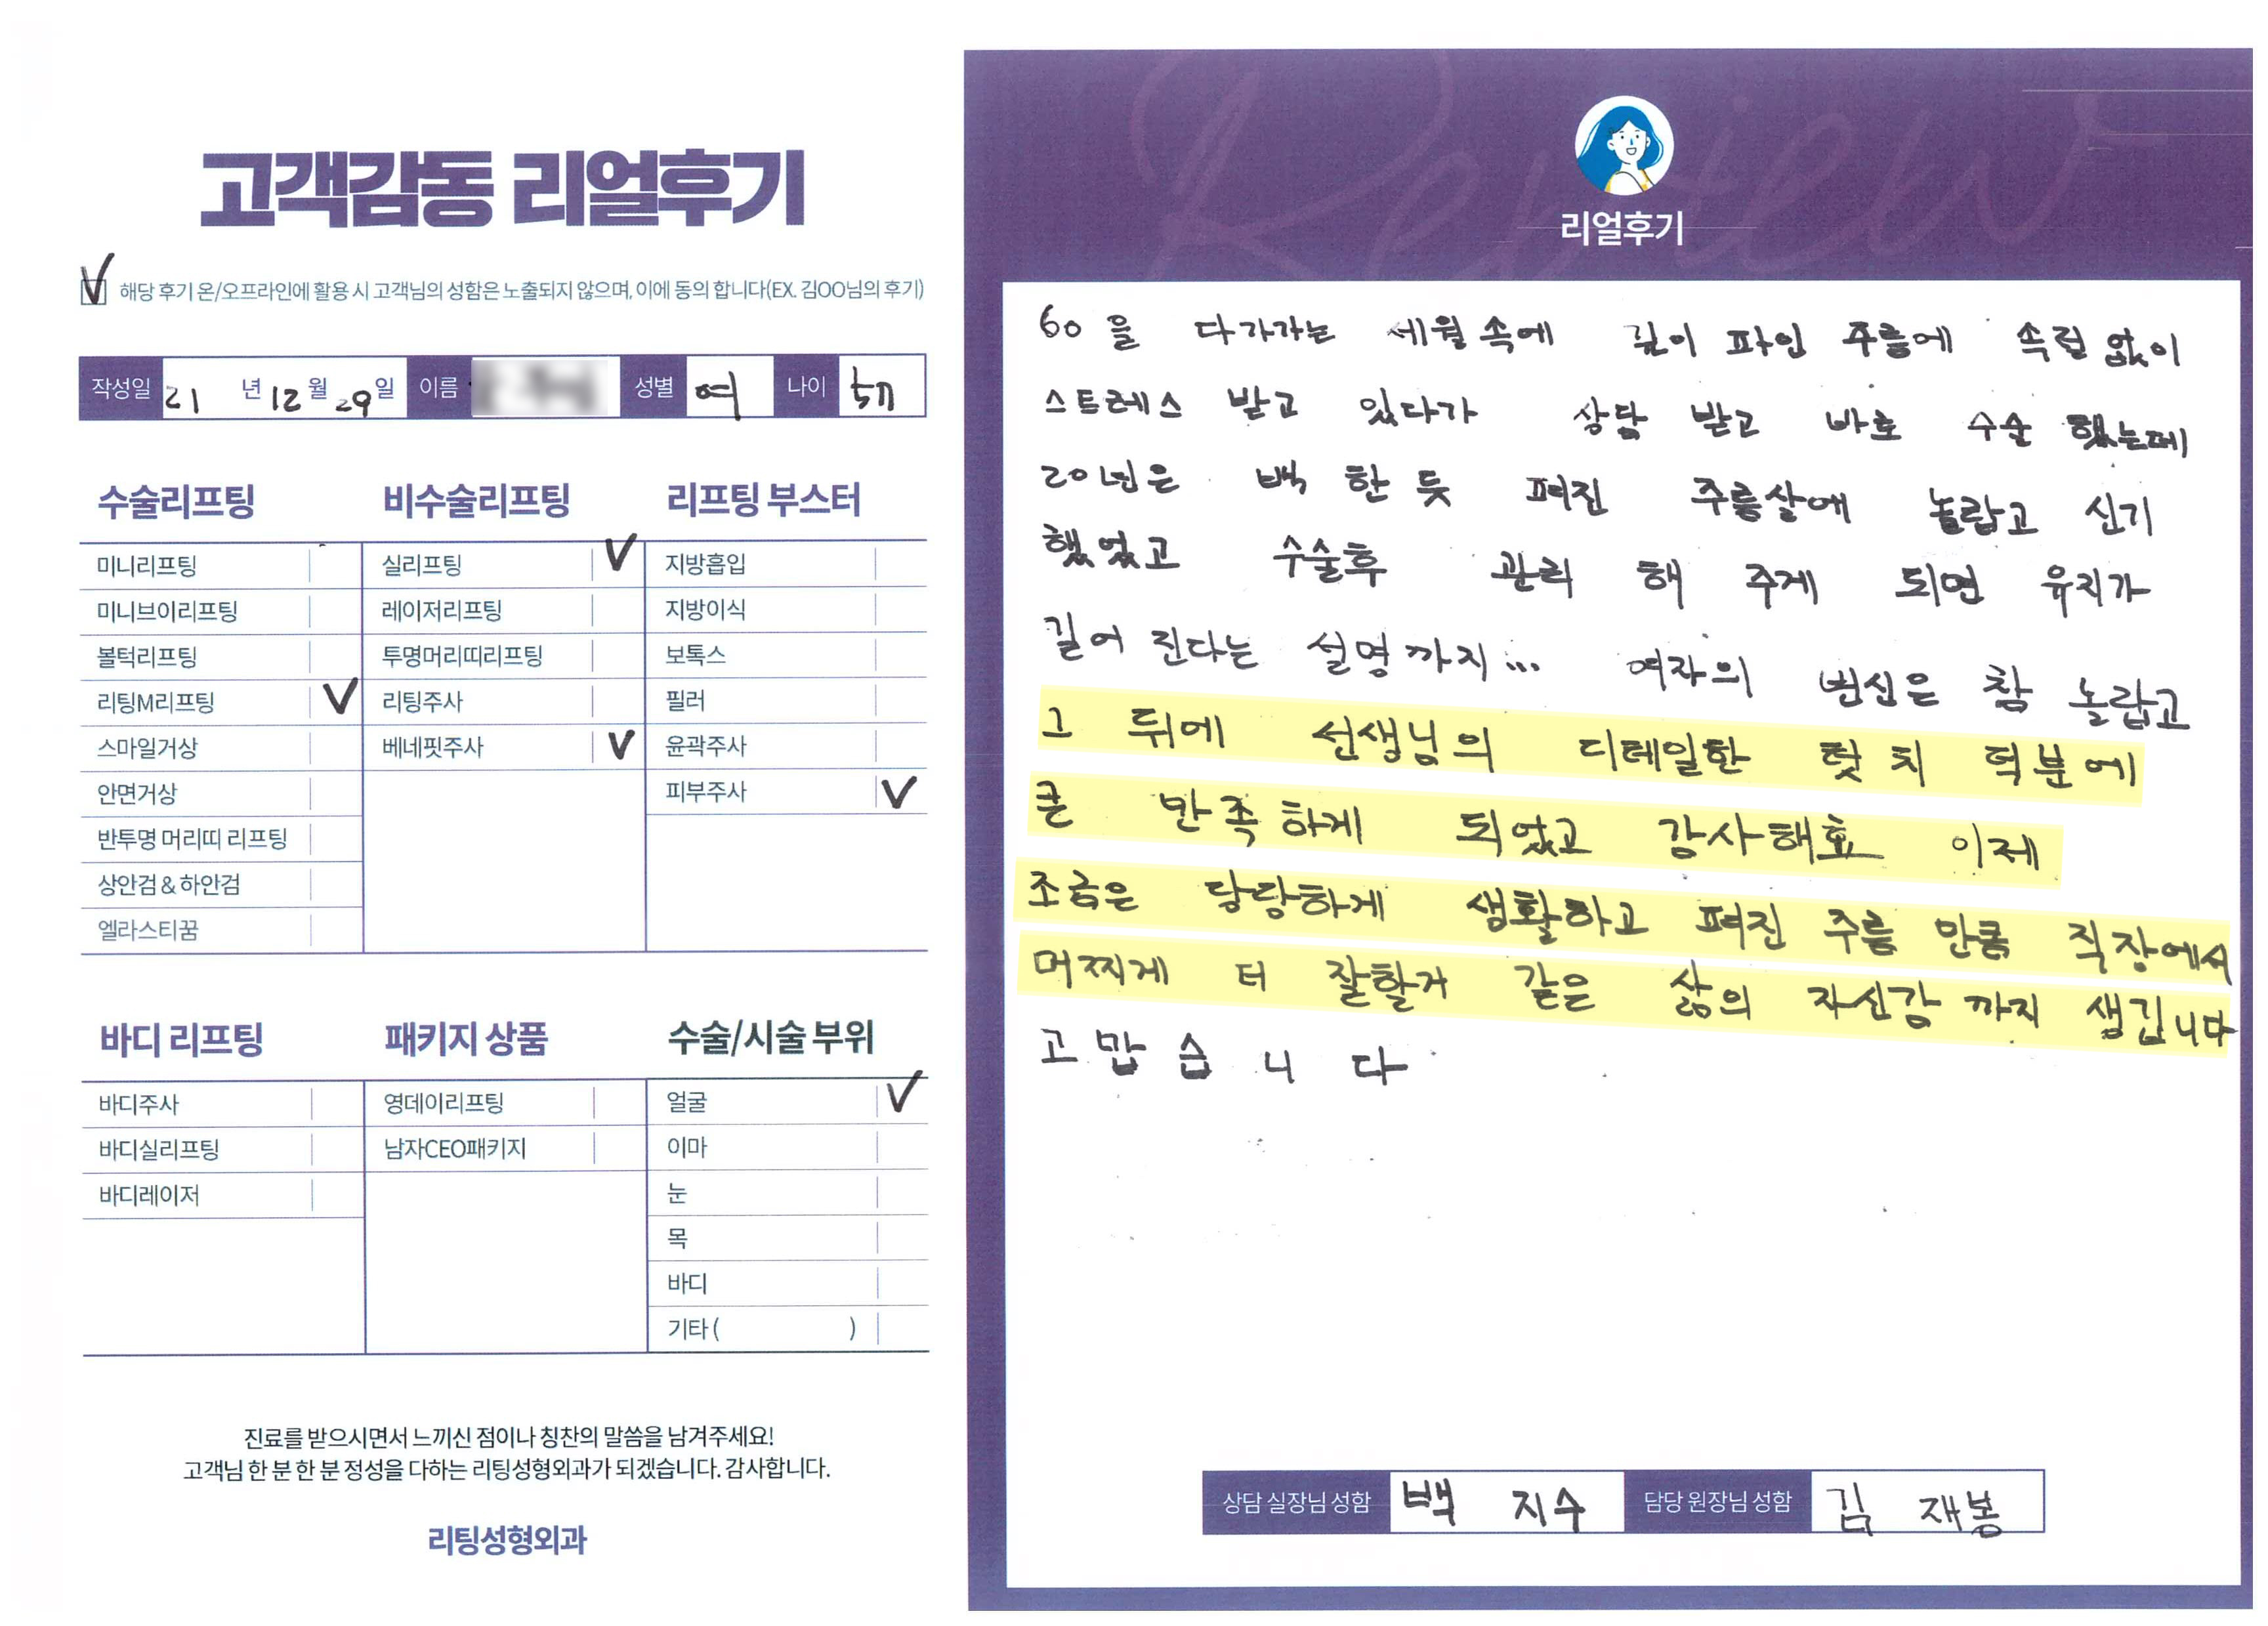 고객감동 리얼후기
해당 후기 온/오프라인에 활용 시 고객님의 성함은 노출되지 않으며, 이에 동의 합니다(EX. 김OO님의 후기)
작성일 21 년 12 월 29 일 이름 성별 여 나이
수술리프팅
미니리프팅
미니브이리프팅
볼턱리프팅
리팅M리프팅 V
스마일거상
안면거상
반투명 머리띠 리프팅
상안검 & 하안검
엘라스티꿈
비수술리프팅
실리프팅 V
레이저리프팅
투명머리띠리프팅
리팅주사
베네핏주사 V
리프팅 부스터
지방흡입
지방이식
보톡스
필러
윤곽주사
피부주사 V
바디 리프팅
바디주사
바디실리프팅
바디레이저
패키지 상품
영데이리프팅
남자CEO패키지
수술/시술 부위
얼굴 V
이마
눈
목
바디
기타 ( )
진료를 받으시면서 느끼신 점이나 칭찬의 말씀을 남겨주세요!
고객님 한 분 한 분 정성을 다하는 리팅성형외과가 되겠습니다. 감사합니다.
리팅성형외과
Review
리얼후기
60을 다가가는 세월 속에 깊이 파인 주름에 속절 없이
스트레스 받고 있다가 상담 받고 바로 수술 했는데
20년은 빽 한 듯 펴진 주름살에 놀랍고 신기
했었고 수술후 관리 해 주게 되면 유지가
길어 진다는 설명 까지... 여자의 변신은 참 놀랍고
그 뒤에 선생님의 디테일한 텃치 덕분에
큰 만족하게 되었고 감사해요 이제
조금은 당당하게 생활하고 펴진 주름 만큼 직장에서
머찌게 더 잘할거 같은 삶의 자신감 까지 생깁니다
고맙습니다
상담 실장님 성함 백 지수 담당 원장님 성함 김 재봉